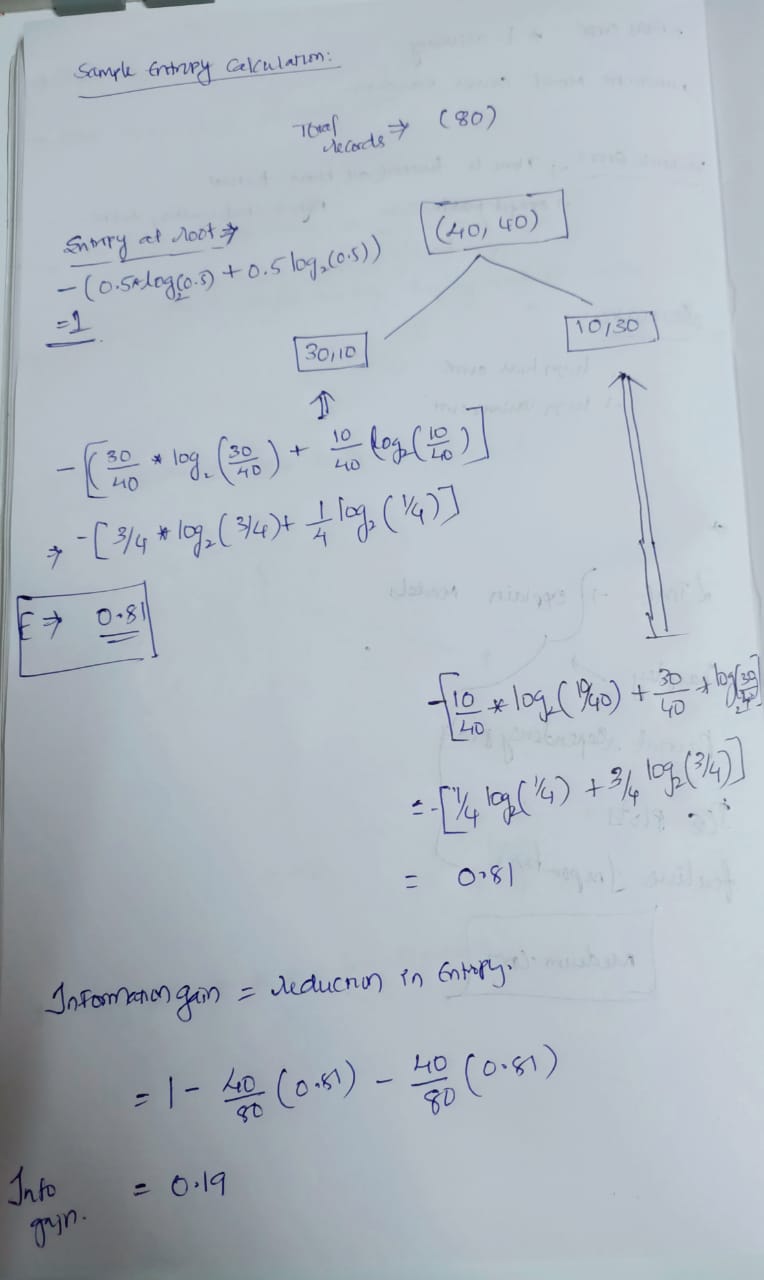 Sample Entropy Calculation:
Total records ⇒ (80)
(40, 40)
Entropy at root ⇒
-(0.5*log₂(0.5) + 0.5 log₂(0.5))
=1
30,10
10,30
-[30/40 * log₂(30/40) + 10/40 log₂(10/40)]
⇒ -[3/4 * log₂(3/4)+ 1/4 log₂(1/4)]
E ⇒ 0.81
-[10/40 * log₂(10/40) + 30/40 * log₂(30/40)]
= -[1/4 log₂(1/4) + 3/4 log₂(3/4)]
= 0.81
Information gain = reduction in Entropy.
= 1 - 40/80 (0.81) - 40/80 (0.81)
Info gain. = 0.19